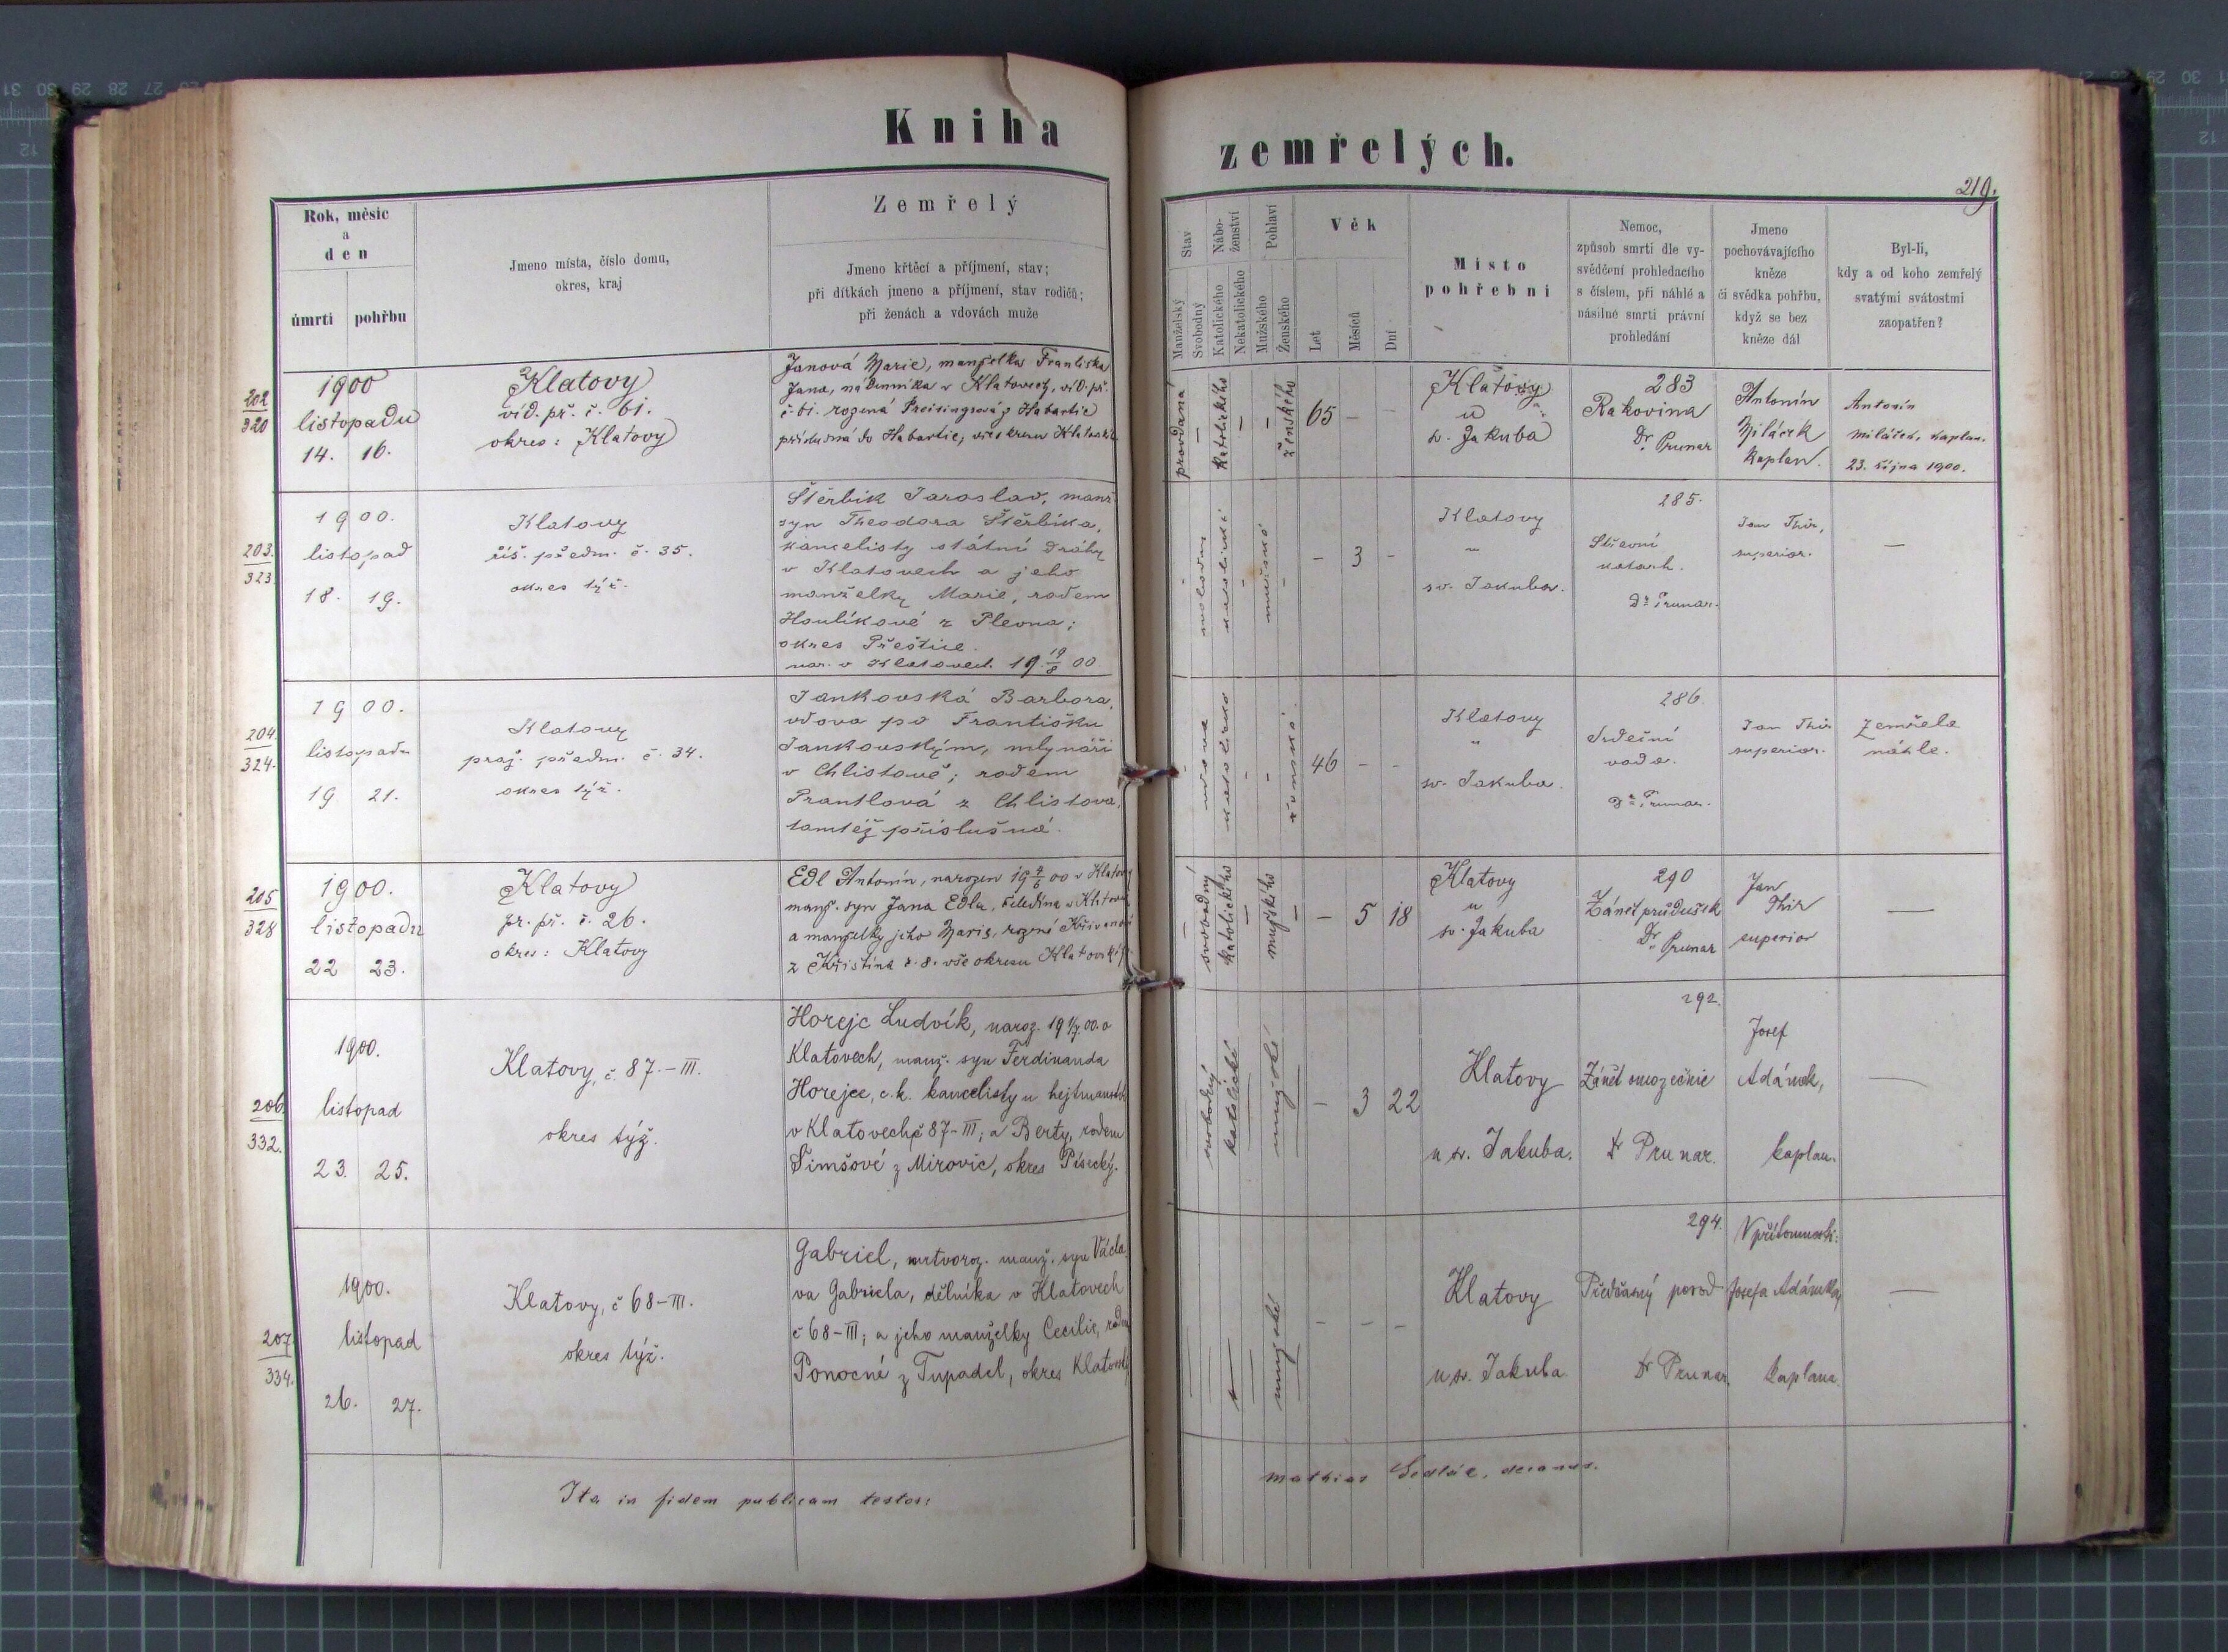 Kniha
zemřelých.
219.
Rok, měsíc
a
den
úmrtí
pohřbu
Jmeno místa, číslo domu,
okres, kraj
Zemřelý
Jmeno křtěcí a příjmení, stav;
při dítkách jmeno a příjmení, stav rodičů;
při ženách a vdovách muže
Stav
Manželský
Svobodný
Nábo-
ženství
Katolického
Nekatolického
Pohlaví
Mužského
Ženského
Věk
Let
Měsíců
Dní
Místo
pohřební
Nemoc,
způsob smrti dle vy-
svědčení prohledacího
s číslem, při náhlé a
násilné smrti právní
prohledání
Jmeno
pochovávajícího
kněze
či svědka pohřbu,
když se bez
kněze dál
Byl-li,
kdy a od koho zemřelý
svatými svátostmi
zaopatřen?
202
320
1900
listopadu
14. 16.
Klatovy
víd. př. č. 61.
okres: Klatovy
Janová Marie, manželka Františka
Jana, nádenníka v Klatovech, víd. př.
č. 61. rozená Preisingrová z Habartic
příslušná do Habartic, vše okresu
provdaná
Katolického
ženského
65 - -
Klatovy
u
sv. Jakuba
283
Rakovina
Dr. Prunar
Antonín
Miláček
Kaplan.
Antonín
Miláček, kaplan.
23. října 1900.
203.
323
1900.
listopad
18. 19.
Klatovy
říš. předm. č. 35.
okres týž.
Štěrbík Jaroslav, manž.
syn Theodora Štěrbíka,
kancelisty státní dráhy
v Klatovech a jeho
manželky Marie, rodem
Houlíkové z Plevna;
okres Přeštice.
nar. v Klatovech 19 19/8 00
- 3 -
Klatovy
u
sv. Jakuba.
285.
Střevní
katarh.
Dr. Prunar.
Jan Thir,
superior.
—
204.
324.
1900.
listopadu
19 21.
Klatovy
praž. předm. č. 34.
okres týž.
Jankovská Barbora,
vdova po Františku
Jankovským, mlynáři
v Chlistově; rodem
Prantlová z Chlistova,
tamtéž příslušná.
vdova
katolické
ženské
46 - -
Klatovy
u
sv. Jakuba.
286.
Srdeční
vada.
Dr. Prunar.
Jan Thir
superior.
Zemřela
náhle.
205
328
1900.
listopadu
22 23.
Klatovy
pr. př. č. 26.
okres: Klatovy
Edl Antonín, narozen 19 4/6 00 v
manž. syn Jana Edla, čeledína v
a manželky jeho Marie, rozené
z Křištína č. 8. vše okresu
svobodný
Katolického
mužského
- 5 18
Klatovy
u
sv. Jakuba
290
Zánět průdušek
Dr. Prunar
Jan
Thir
superior
—
206.
332.
1900.
listopad
23. 25.
Klatovy, č. 87.-III.
okres týž.
Horejc Ludvík, naroz. 19 1/7. 00. v
Klatovech, manž. syn Ferdinanda
Horejce, c.k. kancelisty u
v Klatovech č 87-III; a Berty, rodem
Šimšové z Mirovic, okres Písecký.
svobodný
katolické
mužské
- 3 22
Klatovy
u sv. Jakuba.
292.
Zánět
Dr Prunar.
Josef
Adámek,
kaplan.
—
207
334.
1900.
listopad
26. 27.
Klatovy, č 68-III.
okres týž.
Gabriel, mrtvoroz. manž. syn Václa-
va Gabriela, dělníka v Klatovech
č 68-III; a jeho manželky Cecilie,
Ponocné z Tupadel, okres
mužské
- - -
Klatovy
u sv. Jakuba.
294.
Předčasný porod
Dr Prunar.
V přítomnosti:
Josefa Adámka,
kaplana.
—
Ita in fidem publicam testor:
Mathias Sedlák, decanus.